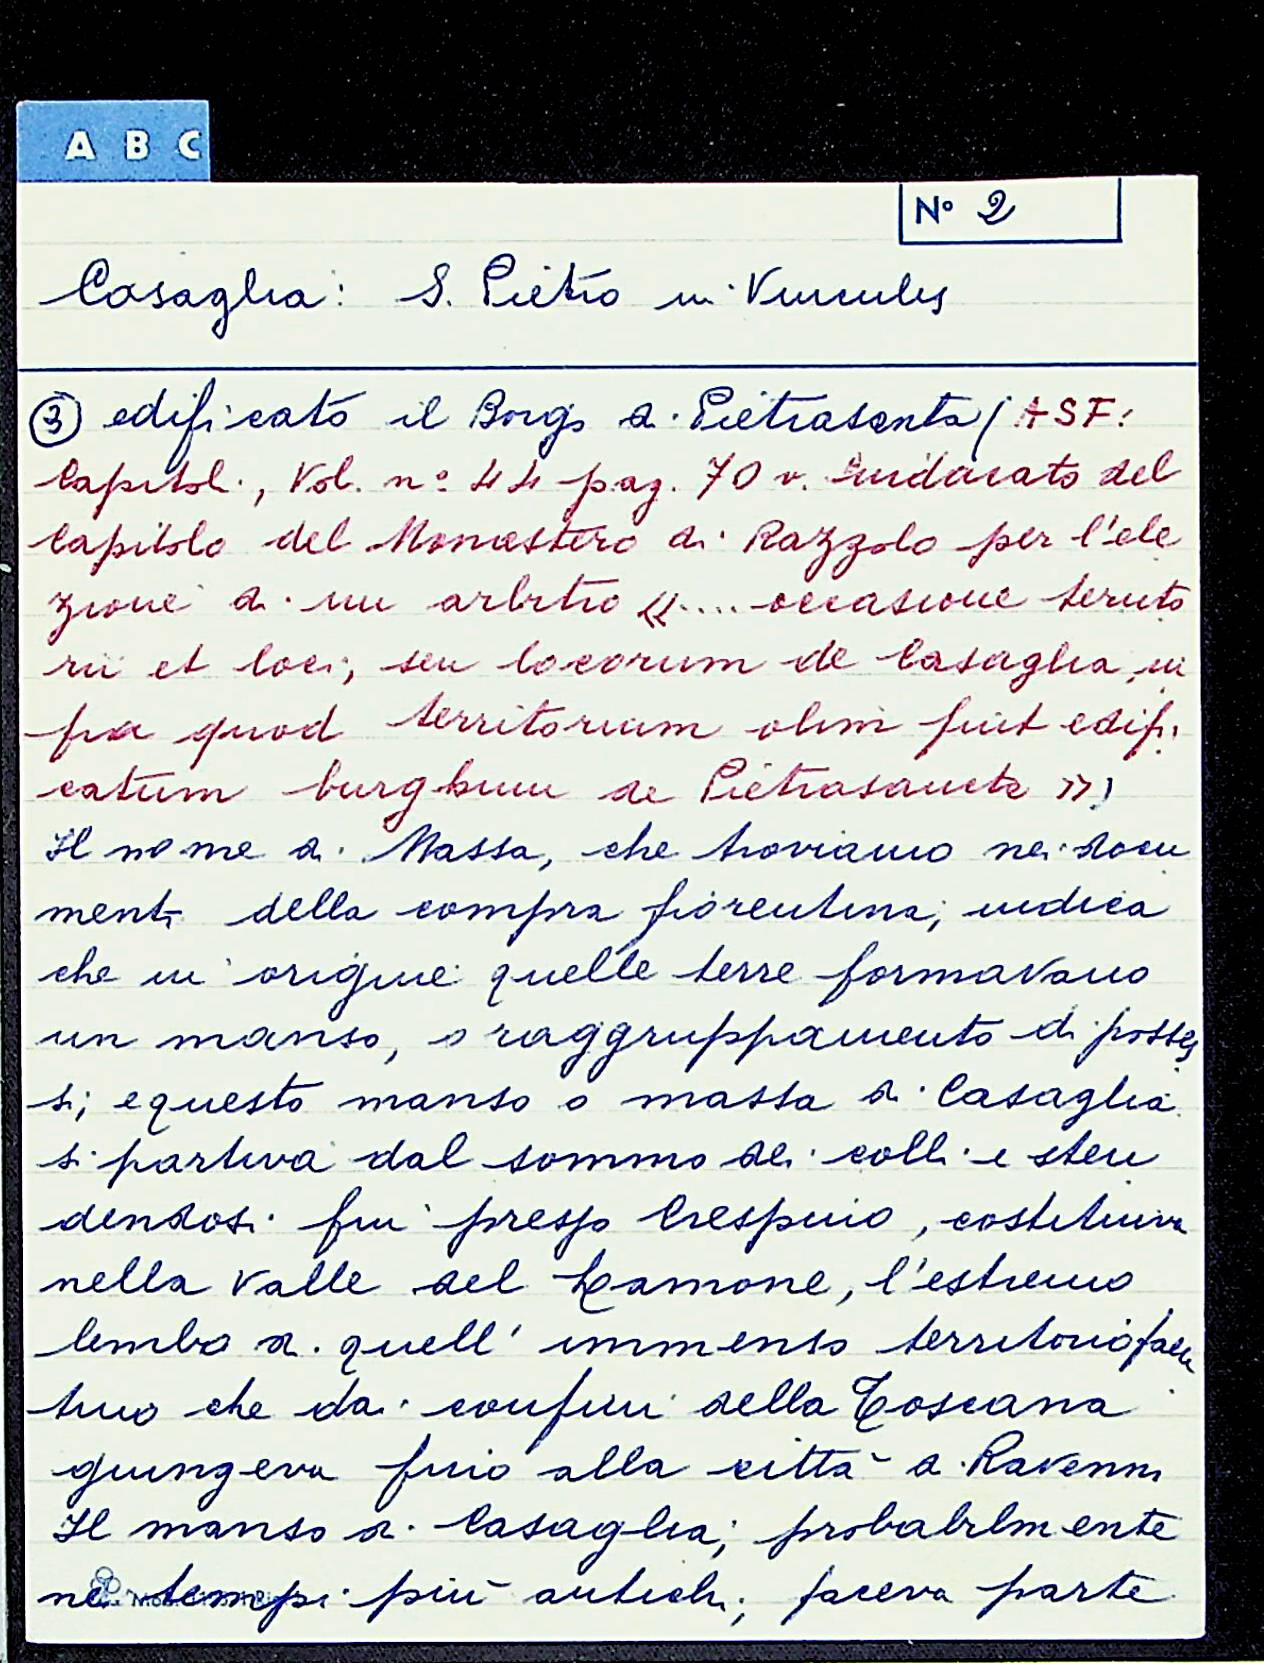 A B C
N° 2
Casaglia: S. Pietro in Vinculis
③ edificato il Borgo di Pietrasanta ( ASF:
Capitol., Vol. n° 44 pag. 70 v. Sindacato del
Capitolo del Monastero di Razzolo per l'ele
zione di un arbitro «.... occasione territo
rii et loci, seu locorum de Casaglia, in
fra quod territorium olim fuit edifi
catum burghum de Pietrasancta »)
Il nome di Massa, che troviamo nei docu
menti della compra fiorentina, indica
che in origine quelle terre formavano
un manso, o raggruppamento di posses
si; e questo manso o massa di Casaglia
si partiva dal sommo dei colli e sten
dendosi fin presso Crespino, costituiva
nella Valle del Lamone, l'estremo
lembo di quell' immenso territorio faen
tino che dai confini della Toscana
giungeva fino alla città di Ravenna
Il manso di Casaglia, probabilmente
nei tempi più antichi, faceva parte